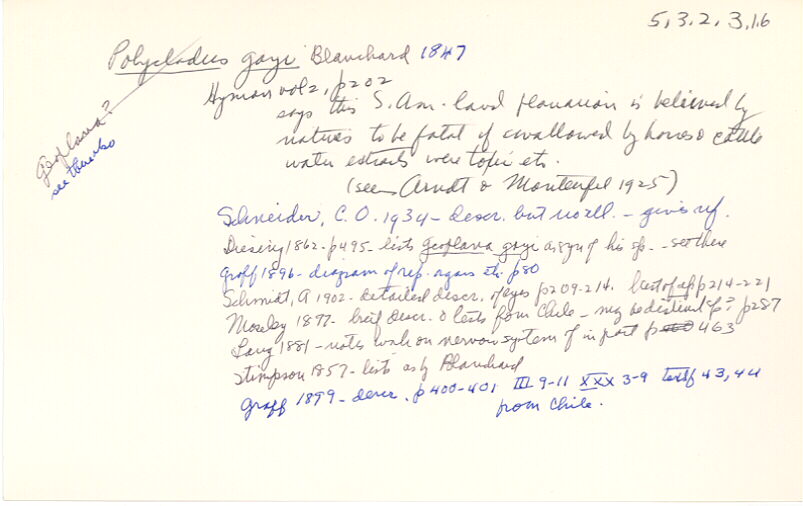 5,3.2,3,1.6
Polycladus gayi Blanchard 1847
Geoplana?
see
Hyman vol 2, p202
says this S. Am. land planarian is believed by
natives to be fatal if swallowed by horses & cattle
water extracts were toxic etc.
(see Arndt & Manteufel 1925)
Schneider, C.O. 1934 - descr. but no ill. - gives ref.
Diesing 1862 - p495 - lists Geoplana gayi as syn of his sp. - see there
Graff 1896 - diagram of rep. organs etc. p80
Schmidt, A 1902 - detailed descr. of eyes p209-214. best of all p214-221
Moseley 1877 - breif descr. & lists from Chile - may be distinct sp? p287
Lang 1881 - notes work on nervous system of in part p 463
Stimpson 1857 - lists as by Blanchard
Graff 1899 - descr. p400-401 III 9-11 XXX 3-9 textf 43,44
from Chile.